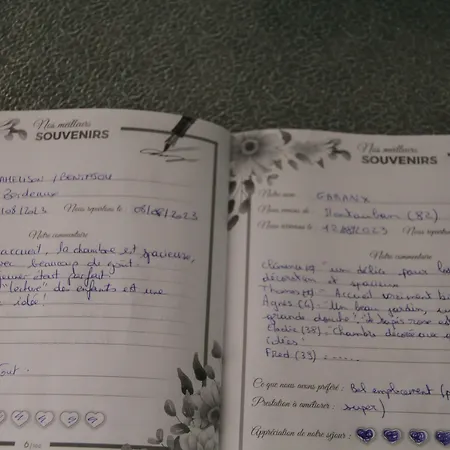 Nos meilleurs
SOUVENIRS
Bordeaux
/08/2023 Nous repartons le 06/08/2023
Notre commentaire
accueil, la chambre est spacieuse,
avec beaucoup de goût.
jeuner était parfait
"lecture" des enfants est une
idée!
Tout.
6/100
Nos meilleurs
SOUVENIRS
Notre nom: GABANX
Nous venons de Montauban (82)
Nous arrivons le 12 2023 Nous repartons
Notre commentaire
Clémence "un délice pour les
décoration et spacieux
Thomas " Accueil vraiment
Agnès (4): Un beau jardin, un
grande douche! tapis rose
Elodie (38): "Chambre décorée avec
idées!
Fred (39) ......
Ce que nous avons préféré: Bel emplacement (
Prestation à améliorer: super)
Appréciation de notre séjour: